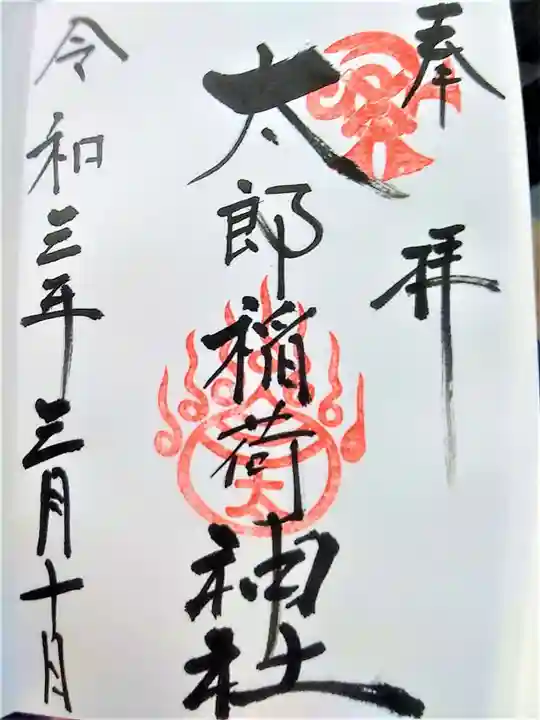 奉拝
太郎稲荷神社
令和三年三月十月
太